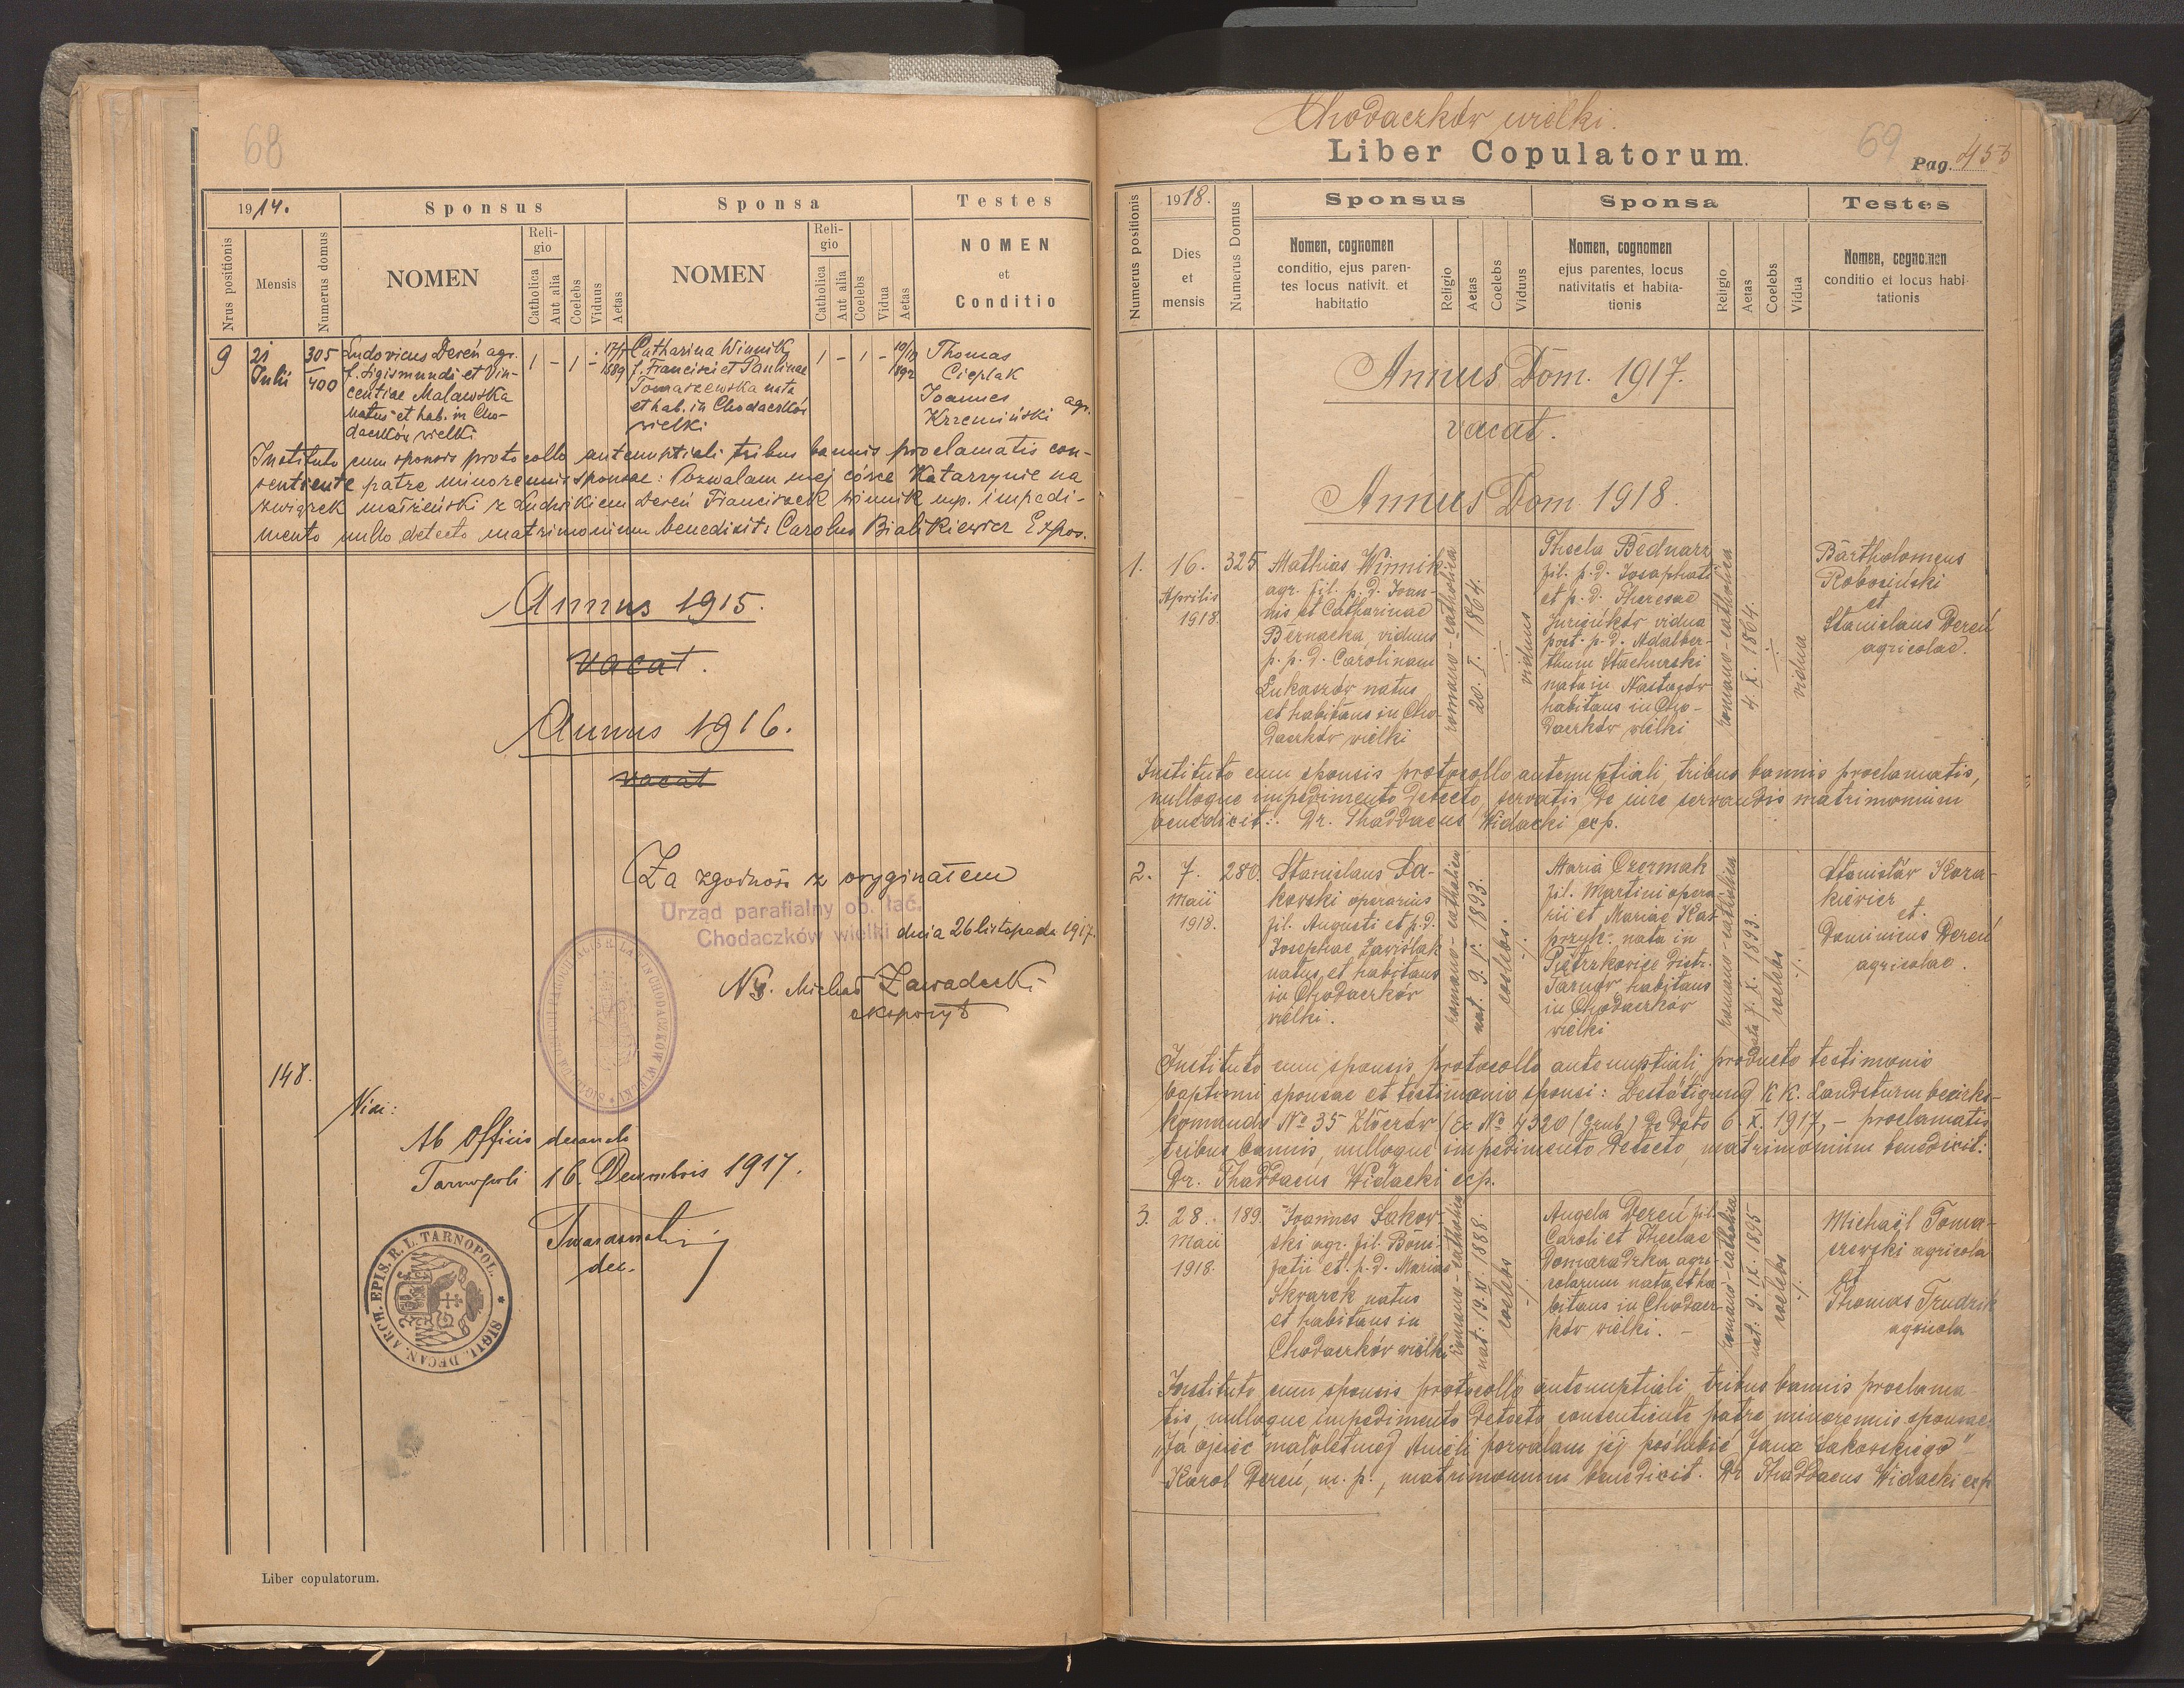 68
1914.
Sponsus
Sponsa
Testes
Nrus positionis
Mensis
Numerus domus
NOMEN
Religio
Catholica
Aut alia
Coelebs
Viduus
Aetas
NOMEN
Religio
Catholica
Aut alia
Coelebs
Vidua
Aetas
NOMEN
et
Conditio
9
21
Julii
305
400
Ludovicus Dereń agr.
f. Sigismundi et Vin-
centiae Malawska
natus et hab. in Cho-
daczków wielki
1 - 1 -
17/7
889
Catharina Winnik
f. Francisci et Paulinae
Tomaszewska nata
et hab. in Chodaczków
wielki
1 - 1 -
10/10
892
Thomas
Cieplak
Joannes agr.
Krzemiński
Instituto cum sponsis protocollo antenuptiali tribus bannis proclamatis con-
sentiente patre minorennis sponsae: Pozwalam mej córce Katarzynie na
związek małżeński z Ludwikiem Dereń Franciszek Winnik mp. impedi-
mento nullo detecto matrimonium benedixit: Carolus Bialikiewicz Expos.
Annus 1915.
vacat.
Annus 1916.
vacat
Za zgodność z oryginałem
Urząd parafialny ob. łać.
Chodaczków wielki dnia 26 listopada 1917.
X. Michał Zawadecki
ekspozyt
148.
Vidi:
Ab Officio decanali
Tarnopoli 16. Decembris 1917.
dec.
SIGIL. DECAN. ARCH. EPIS. R. L. TARNOPOL.
Liber copulatorum.
Chodaczków wielki.
Liber Copulatorum.
69
Pag. 455
Numerus positionis
1918.
Dies
et
mensis
Numerus Domus
Sponsus
Nomen, cognomen
conditio, ejus paren-
tes locus nativit. et
habitatio
Religio
Aetas
Coelebs
Viduus
Sponsa
Nomen, cognomen
ejus parentes, locus
nativitatis et habita-
tionis
Religio
Aetas
Coelebs
Vidua
Testes
Nomen, cognomen
conditio et locus habi-
tationis
Annus Dom. 1917.
vacat.
Annus Dom. 1918.
1.
16.
Aprilis
1918.
325
Mathias Winnik
agr. fil. p. d. Joan-
nis et Catharinae
Bernacka, viduus
p. p. d. Carolinam
Łukaszów natus
et habitans in Cho-
daczków wielki
romano-catholica
20. I. 1864.
viduus
Thecla Bednarz
fil. p. d. Josaphati
et p. d. Theresae
Juriników vidua
post p. d. Adalber-
thum Stachurski
nata in Nastasów
habitans in Cho-
daczków wielki
romano-catholica
4. X. 1864.
vidua
Bartholomeus
Robosiński
et
Stanislaus Dereń
agricolae.
Instituto cum sponsis protocollo antenuptiali, tribus bannis proclamatis,
nulloque impedimento detecto, servatis de iure servandis matrimonium
benedixit: Dr. Thaddaeus Widacki exp.
2.
7.
maii
1918.
280.
Stanislaus Sa-
kowski operarius
fil. Augusti et p. d.
Josephae Zawiślak
natus et habitans
in Chodaczków
wielki.
romano-catholica
nat. 9. V. 1893.
coelebs.
Maria Czermak
fil. Martini opera-
rii et Mariae Kas-
przyk: nata in
Pietrzkowice distr.
Tarnów habitans
in Chodaczków
wielki
romano-catholica
nata 7. X. 1893.
coelebs
Stanisław Kora-
kiewicz
et.
Dominicus Dereń
agricolae.
Instituto cum sponsis protocollo antenuptiali, producto testimonio
baptismi sponsae et testimonio sponsi: Bestätigung k. k. Landsturmbezirks-
komando No 35 Złoczów (Ev No 4320 / Grub) de dato 6. X. 1917, - proclamatis
tribus bannis, nulloque impedimento detecto, matrimonium benedixit:
Dr. Thaddaeus Widacki exp.
3.
28.
maii
1918.
189.
Joannes Sakow-
ski agr. fil. Boni-
fatii et p. d. Mariae
Skwarek natus
et habitans in
Chodaczków wielki
romano-catholica
nat: 19. XI. 1888.
coelebs
Angela Dereń fil.
Caroli et Theclae
Domaradzka agri-
colarum nata et ha-
bitans in Chodacz-
ków wielki. -
romano-catholica
nat: 9. IX. 1895
coelebs
Michaël Toma-
szewski agricola
et
Thomas Trudzik
agricola
Instituto cum sponsis protocollo antenuptiali, tribus bannis proclama-
tis, nulloque impedimento detecto consentiente patre minorennis sponsae:
"Ja ojciec małoletniej Anieli pozwalam jej poślubić Jana Sakowskiego"
Karol Dereń, m. p., matrimonium benedixit. Dr Thaddaeus Widacki exp